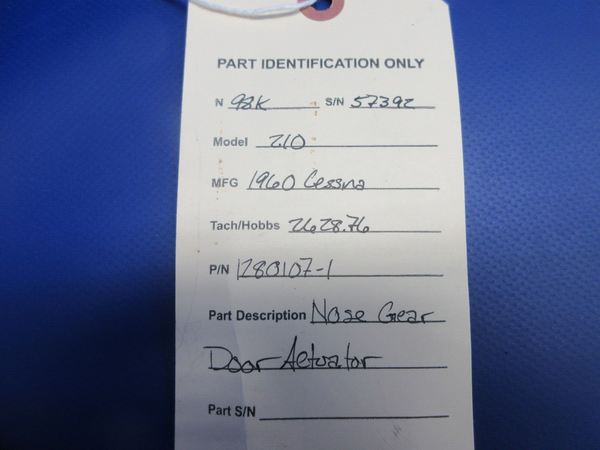 PART IDENTIFICATION ONLY
N 98K S/N 57392
Model 210
MFG 1960 Cessna
Tach/Hobbs 2628.76
P/N 1280107-1
Part Description Nose Gear
Door Actuator
Part S/N